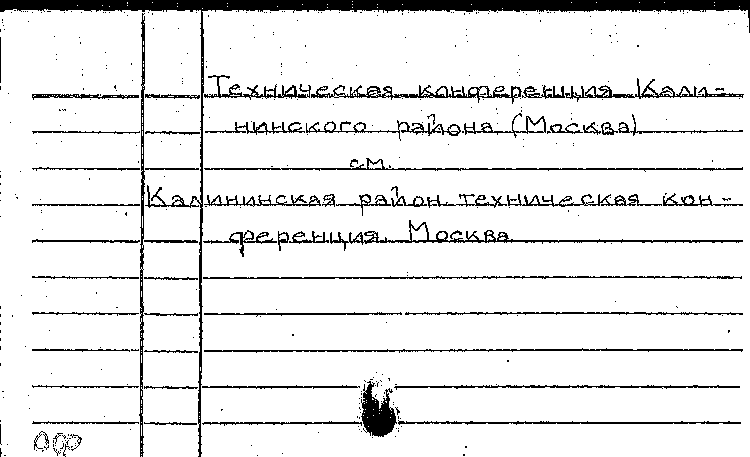 Техническая конференция Кали=
нинского района (Москва)
см.
Калининская район. техническая кон-
ференция. Москва